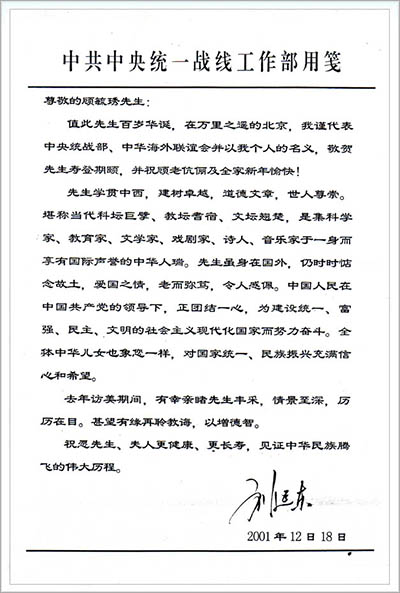 中共中央统一战线工作部用笺
尊敬的顾毓琇先生：
值此先生百岁华诞，在万里之遥的北京，我谨代表
中央统战部、中华海外联谊会并以我个人的名义，敬贺
先生寿登期颐，并祝顾老伉俪及全家新年愉快！
先生学贯中西，建树卓越，道德文章，世人尊崇。
堪称当代科坛巨擘、教坛耆宿、文坛翘楚，是集科学
家、教育家、文学家、戏剧家、诗人、音乐家于一身而
享有国际声誉的中华人瑞。先生虽身在国外，仍时时惦
念故土，爱国之情，老而弥笃，令人感佩。中国人民在
中国共产党的领导下，正团结一心，为建设统一、富
强、民主、文明的社会主义现代化国家而努力奋斗。全
体中华儿女也象您一样，对国家统一、民族振兴充满信
心和希望。
去年访美期间，有幸亲睹先生丰采，情景至深，历
历在目。甚望有缘再聆教诲，以增德智。
祝愿先生、夫人更健康、更长寿，见证中华民族腾
飞的伟大历程。
刘延东
2001年12月18日